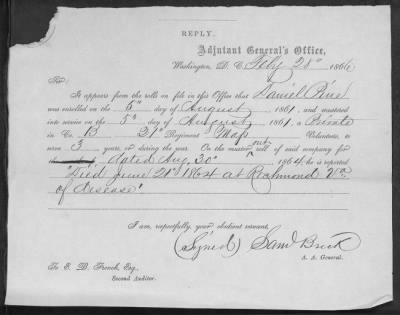 REPLY.
Adjutant General's Office,
Washington, D. C. Feby 28" 1866
SIR:
It appears from the rolls on file in this Office that Daniel
was enrolled on the 5" day of August 1861, and mustered
into service on the 5" day of August 1861, a Private
in Co. B Regiment Mass Volunteers, to
serve 3 years, or during the war. On the muster out roll of said company for
dated Aug. 30" 1864, he is reported
"Died June 21" 1864 at Richmond Va.
of disease"
I am, respectfully, your obedient servant,
(Signed) Saml Breck
A. A. General.
To E. B. French, Esq.,
Second Auditor.